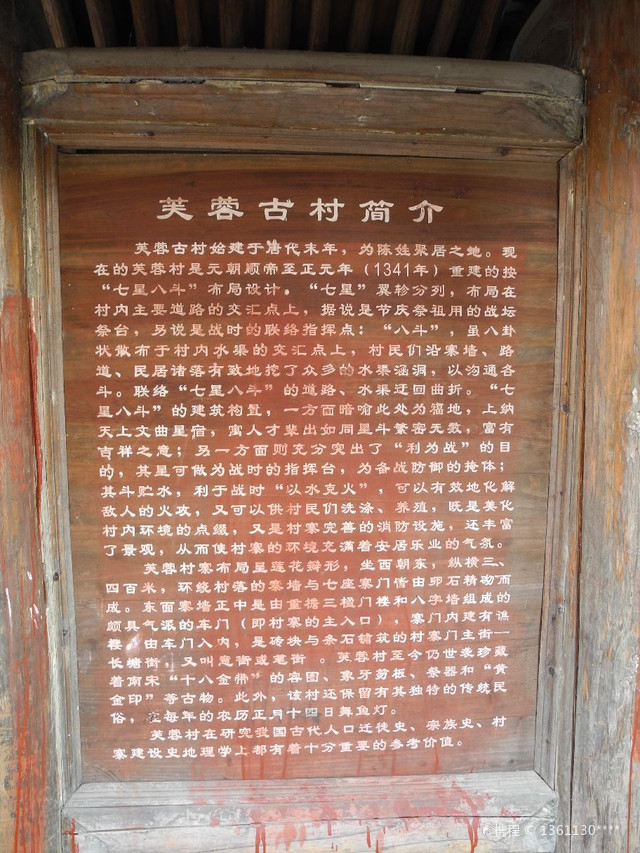 芙蓉古村简介
芙蓉古村始建于唐代末年，为陈姓聚居之地。现
在的芙蓉村是元朝顺帝至正元年（1341年）重建的按
“七星八斗”布局设计。“七星”翼轸分列，布局在
村内主要道路的交汇点上，据说是节庆祭祖用的战坛
祭台，另说是战时的联络指挥点：“八斗”，虽八卦
状散布于村内水渠的交汇点上，村民们沿寨墙、路
道、民居诸落有致地挖了众多的水渠涵洞，以沟通各
斗。联络“七星八斗”的道路、水渠迂回曲折。“七
星八斗”的建筑构置，一方面暗喻此处为福地，上纳
天上文曲星宿，寓人才辈出如同星斗繁密无数，富有
吉祥之意；另一方面则充分突出了“利为战”的目
的，其星可做为战时的指挥台，为备战防御的掩体；
其斗贮水，利于战时“以水克火”，可以有效地化解
敌人的火攻，又可以供村民们洗涤、养殖，既是美化
村内环境的点缀，又是村寨完善的消防设施，还丰富
了景观，从而使村寨的环境充满着安居乐业的气氛。
芙蓉村寨布局呈莲花瓣形，坐西朝东，纵横三、
四百米，环绕村落的寨墙与七座寨门皆由卵石精砌而
成。东面寨墙正中是由重檐三楹门楼和八字墙组成的
颇具气派的车门（即村寨的主入口），寨门内建有谯
楼。由车门入内，是砖块与条石铺筑的村寨门主街一
长塘街，又叫意街或笔街 。芙蓉村至今仍世袭珍藏
着南宋“十八金带”的容图、象牙剪板、祭器和“黄
金印”等古物。此外，该村还保留有其独特的传统民
俗，在每年的农历正月十四日舞鱼灯。
芙蓉村在研究我国古代人口迁徙史、宗族史、村
寨建设史地理学上都有着十分重要的参考价值。
携程 © 1361130****